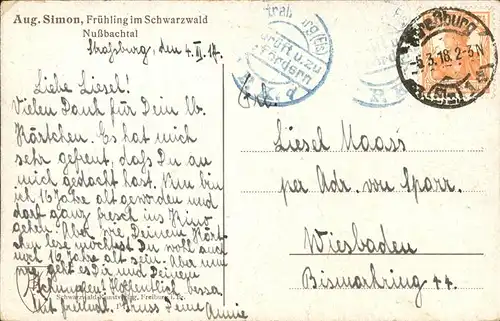 Aug. Simon, Frühling im Schwarzwald
Nußbachtal
Straßburg, den 4. II.
Liebe Liesel!
Vielen Dank für Dein lb.
Kärtchen. Es hat mich
sehr gefreut, daß Du an
mich gedacht hast. Nun bin
ich 16 Jahre alt geworden und
darf ganz frech ins Kino
gehen! Aber wie Deinem Kärt-
chen lese möchtest Du wohl auch
16 Jahre alt sein. Aber nun
wie geht es Dir und Deinem
Hoffentlich besser
Mit freundl. Gruss Deine Annie
Schwarzwald-Kunstverlag, Freiburg i. Br.
Geprüft u. zu
befördern
P. K.
5.3.16. 2-3 N
(Els) 1
Frl.
Liesel Maass
per Adr. von Sparr.
Wiesbaden
Bismarkring 44.